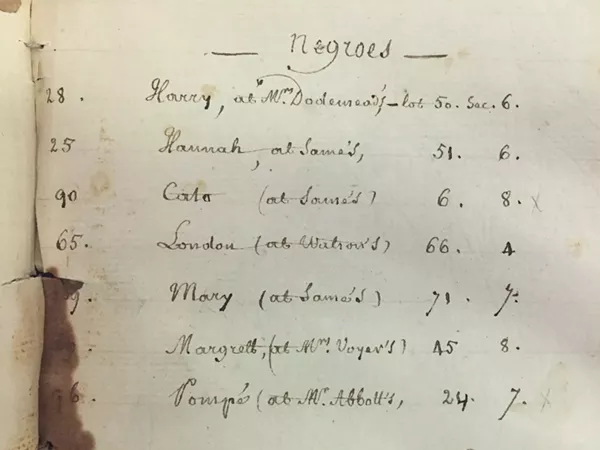 — Negroes —
28. Harry, at Mrs Dodemead's, – lot 50. Sec. 6.
25 Hannah, at Same's, 51. 6.
90 Cato (at Same's) 6. 8. x
65. London (at Watson's) 66. 4
9. Mary (at Same's) 71. 7.
Margrett, (at Mrs Voyer's) 45 8.
6. Pompé (at Mr. Abbott's, 24. 7. x